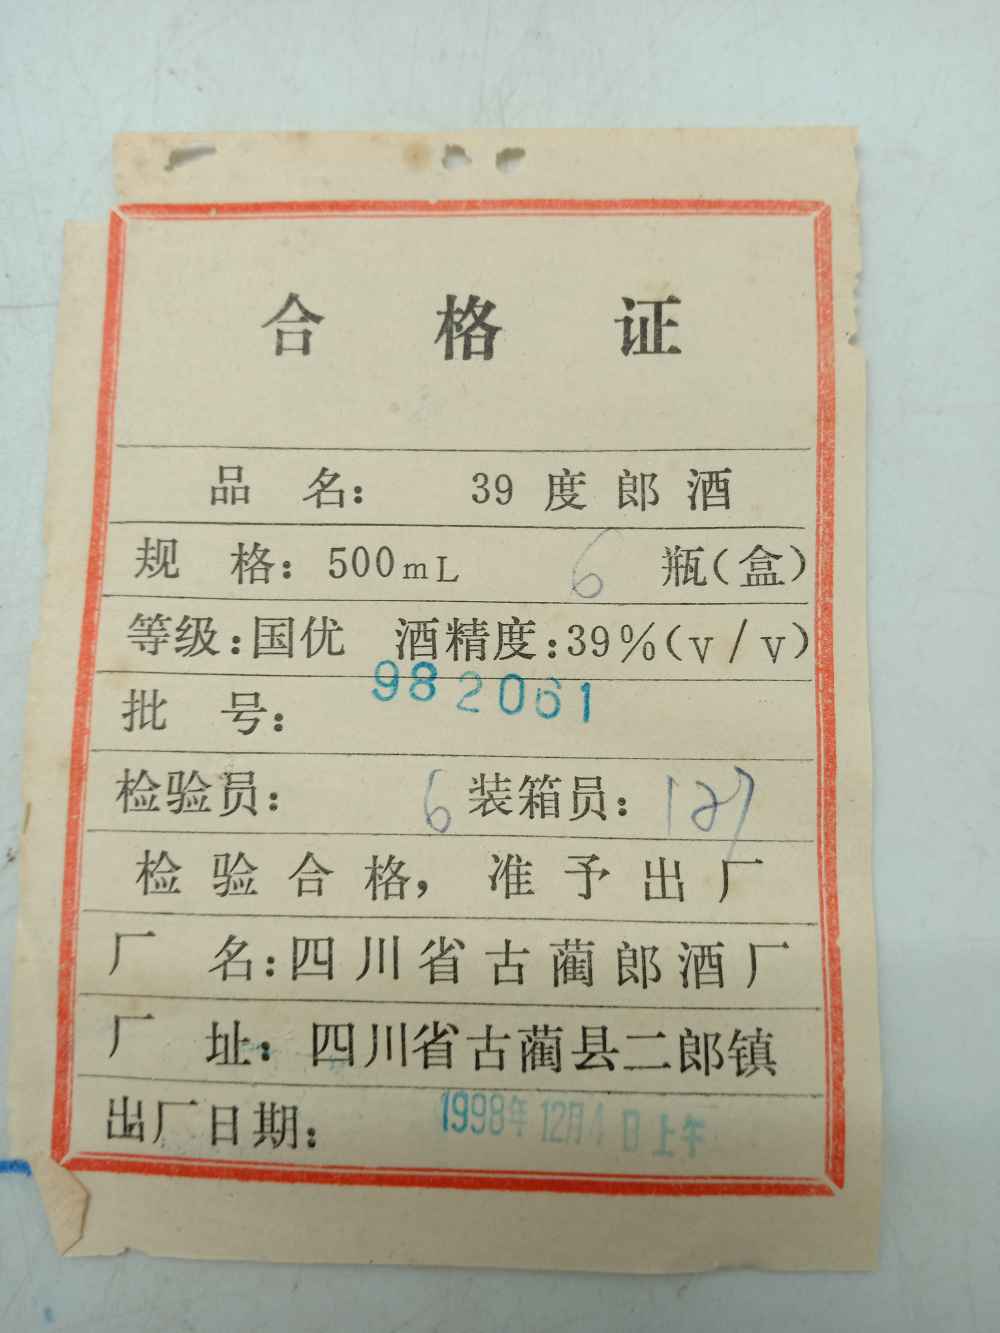 合格证
品名：39度郎酒
规格：500mL 6 瓶（盒）
等级：国优 酒精度：39%（v/v）
批号：982061
检验员：6 装箱员：127
检验合格，准予出厂
厂名：四川省古蔺郎酒厂
厂址：四川省古蔺县二郎镇
出厂日期：1998年12月4日上午